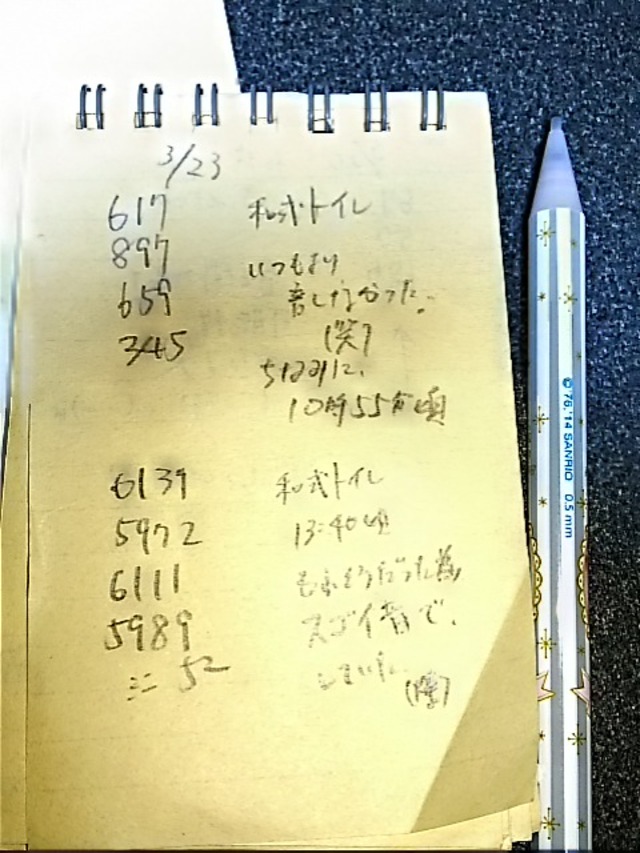 3/23
617 和式トイレ
897 いつもより
659 音しなかった。
345 (笑)
ちなみに、
10時55分頃
6139 和式トイレ
5972 13:40頃
6111 もれそうだった為
5989 スゴイ音で、
52 していた
© '76, '14 SANRIO 0.5mm